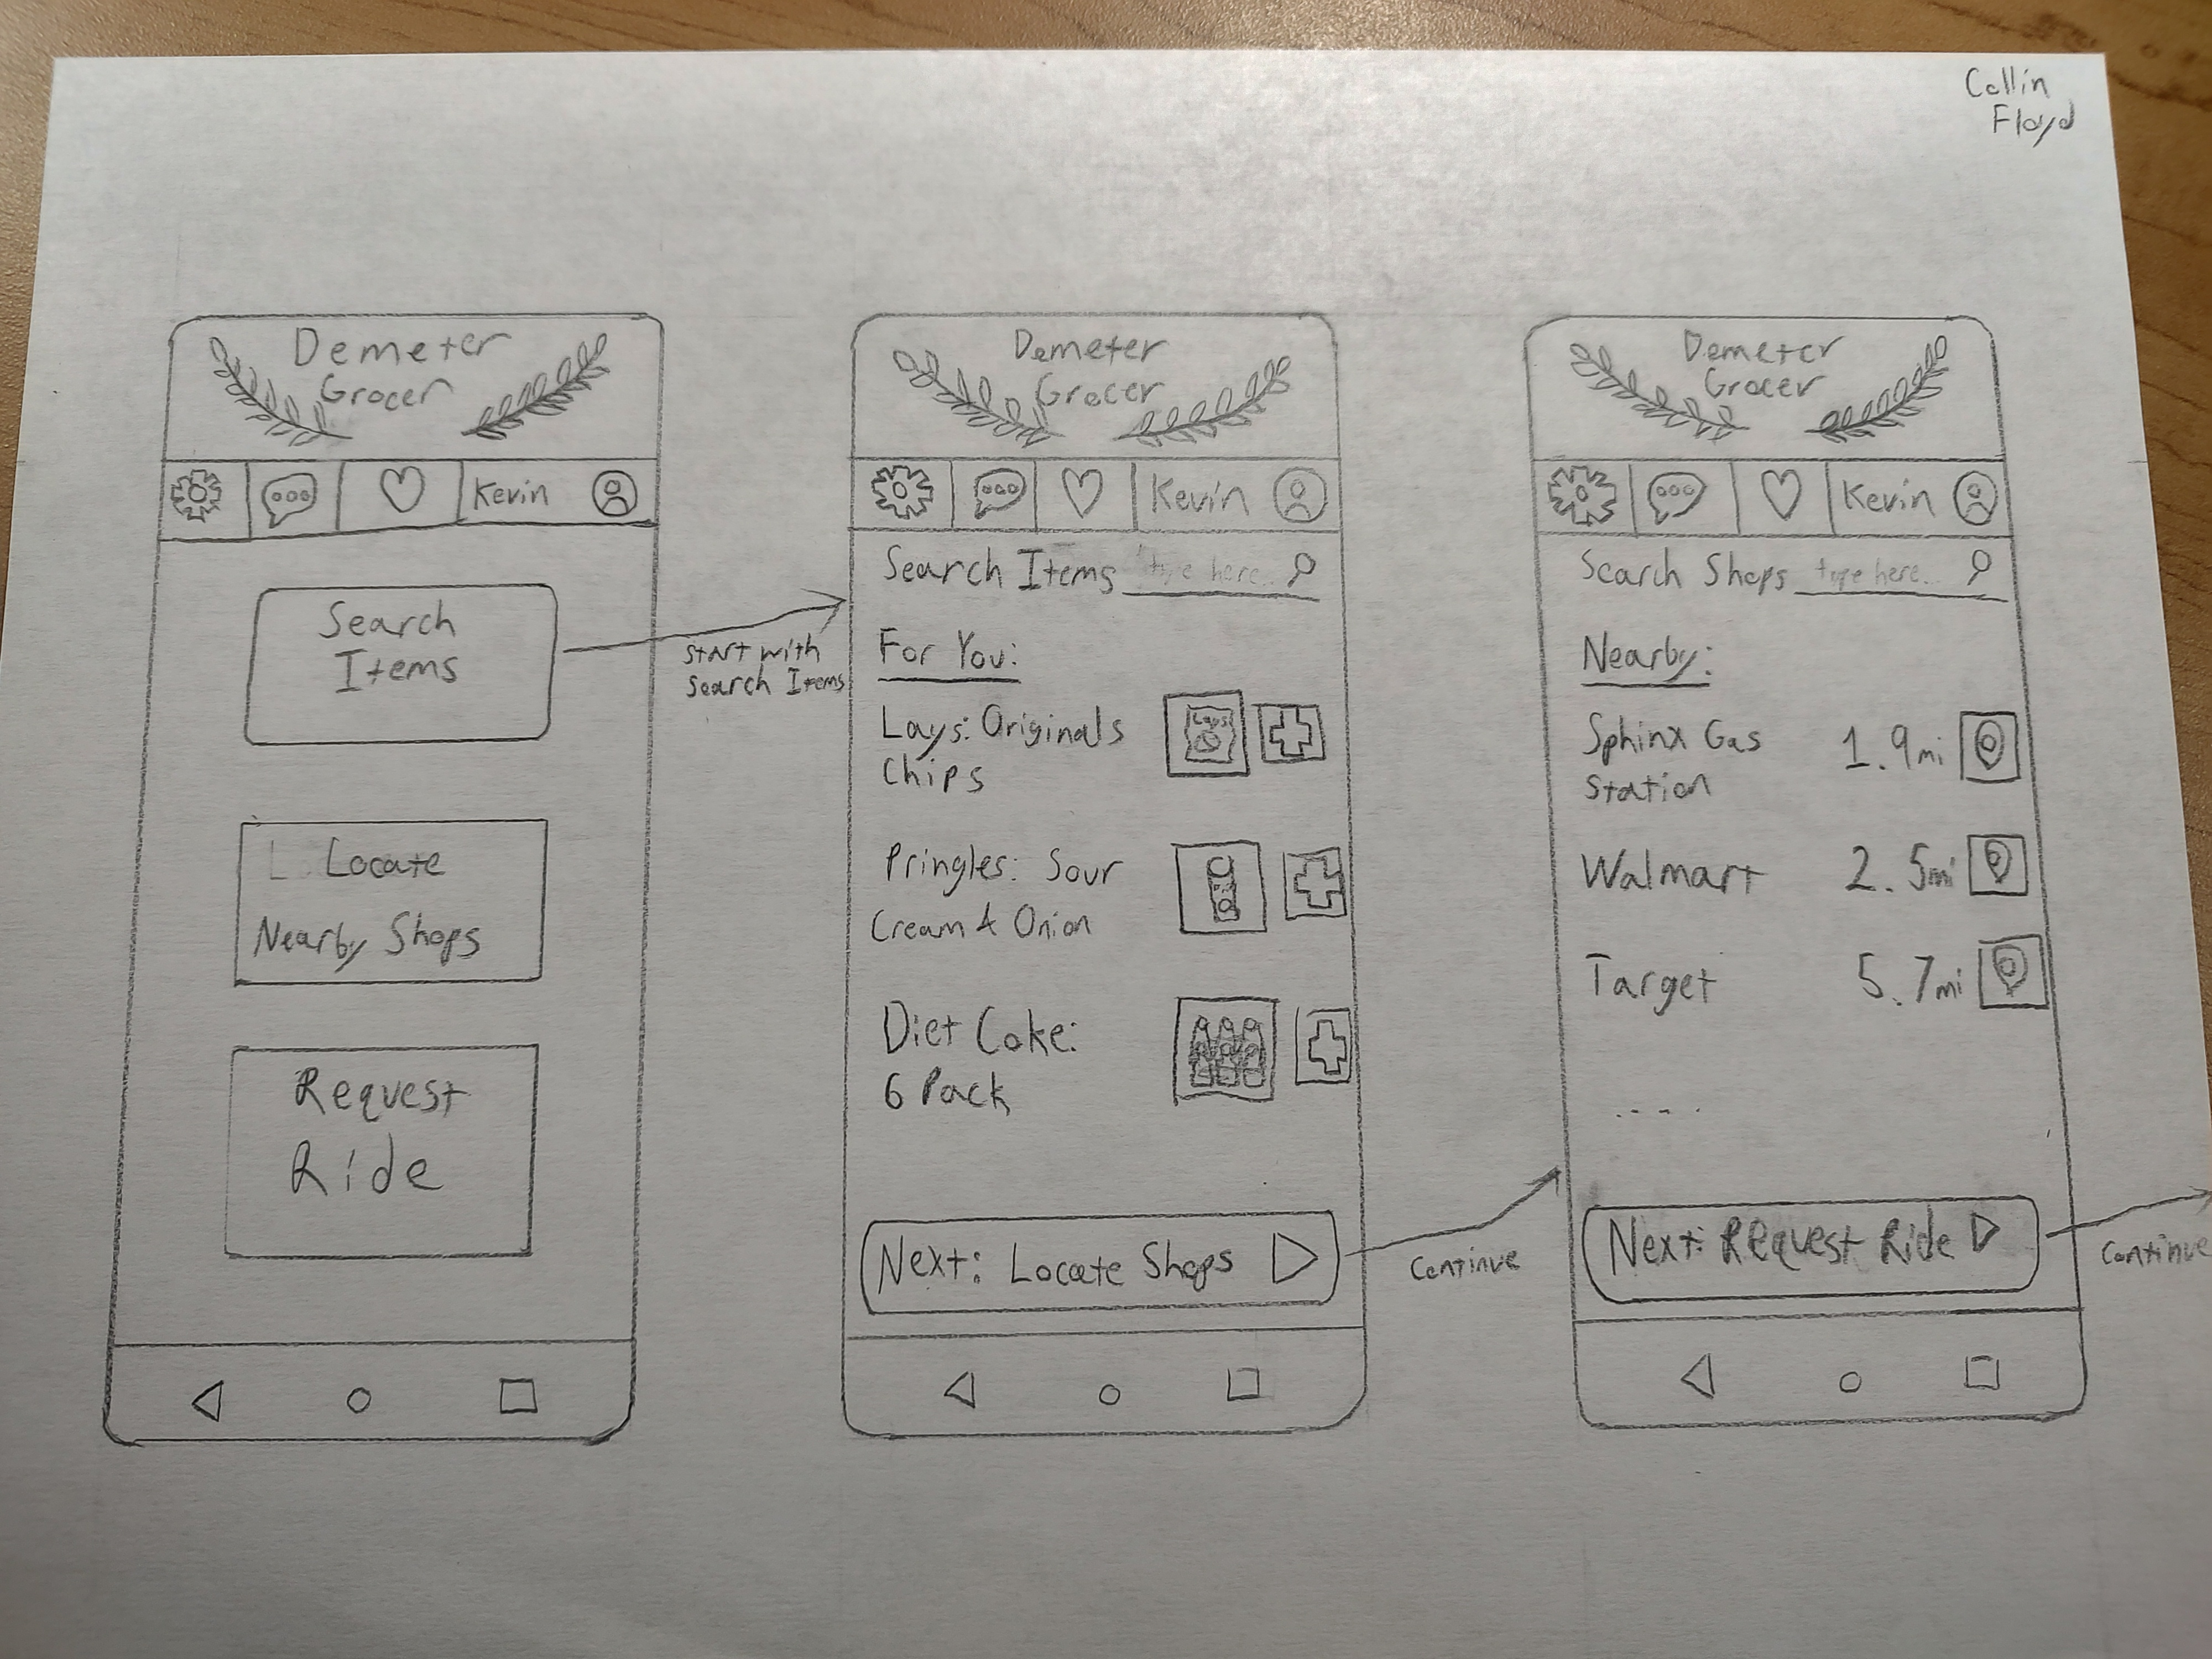 Collin
Floyd
Demeter
Grocer
Kevin
Search
Items
Locate
Nearby Shops
Request
Ride
Start with
Search Items
Demeter
Grocer
Kevin
Search Items type here...
For You:
Lays: Originals
Chips
Pringles: Sour
Cream & Onion
Diet Coke:
6 Pack
Next: Locate Shops
Continue
Demeter
Grocer
Kevin
Search Shops type here...
Nearby:
Sphinx Gas
Station 1.9mi
Walmart 2.5mi
Target 5.7mi
...
Next: Request Ride
Continue